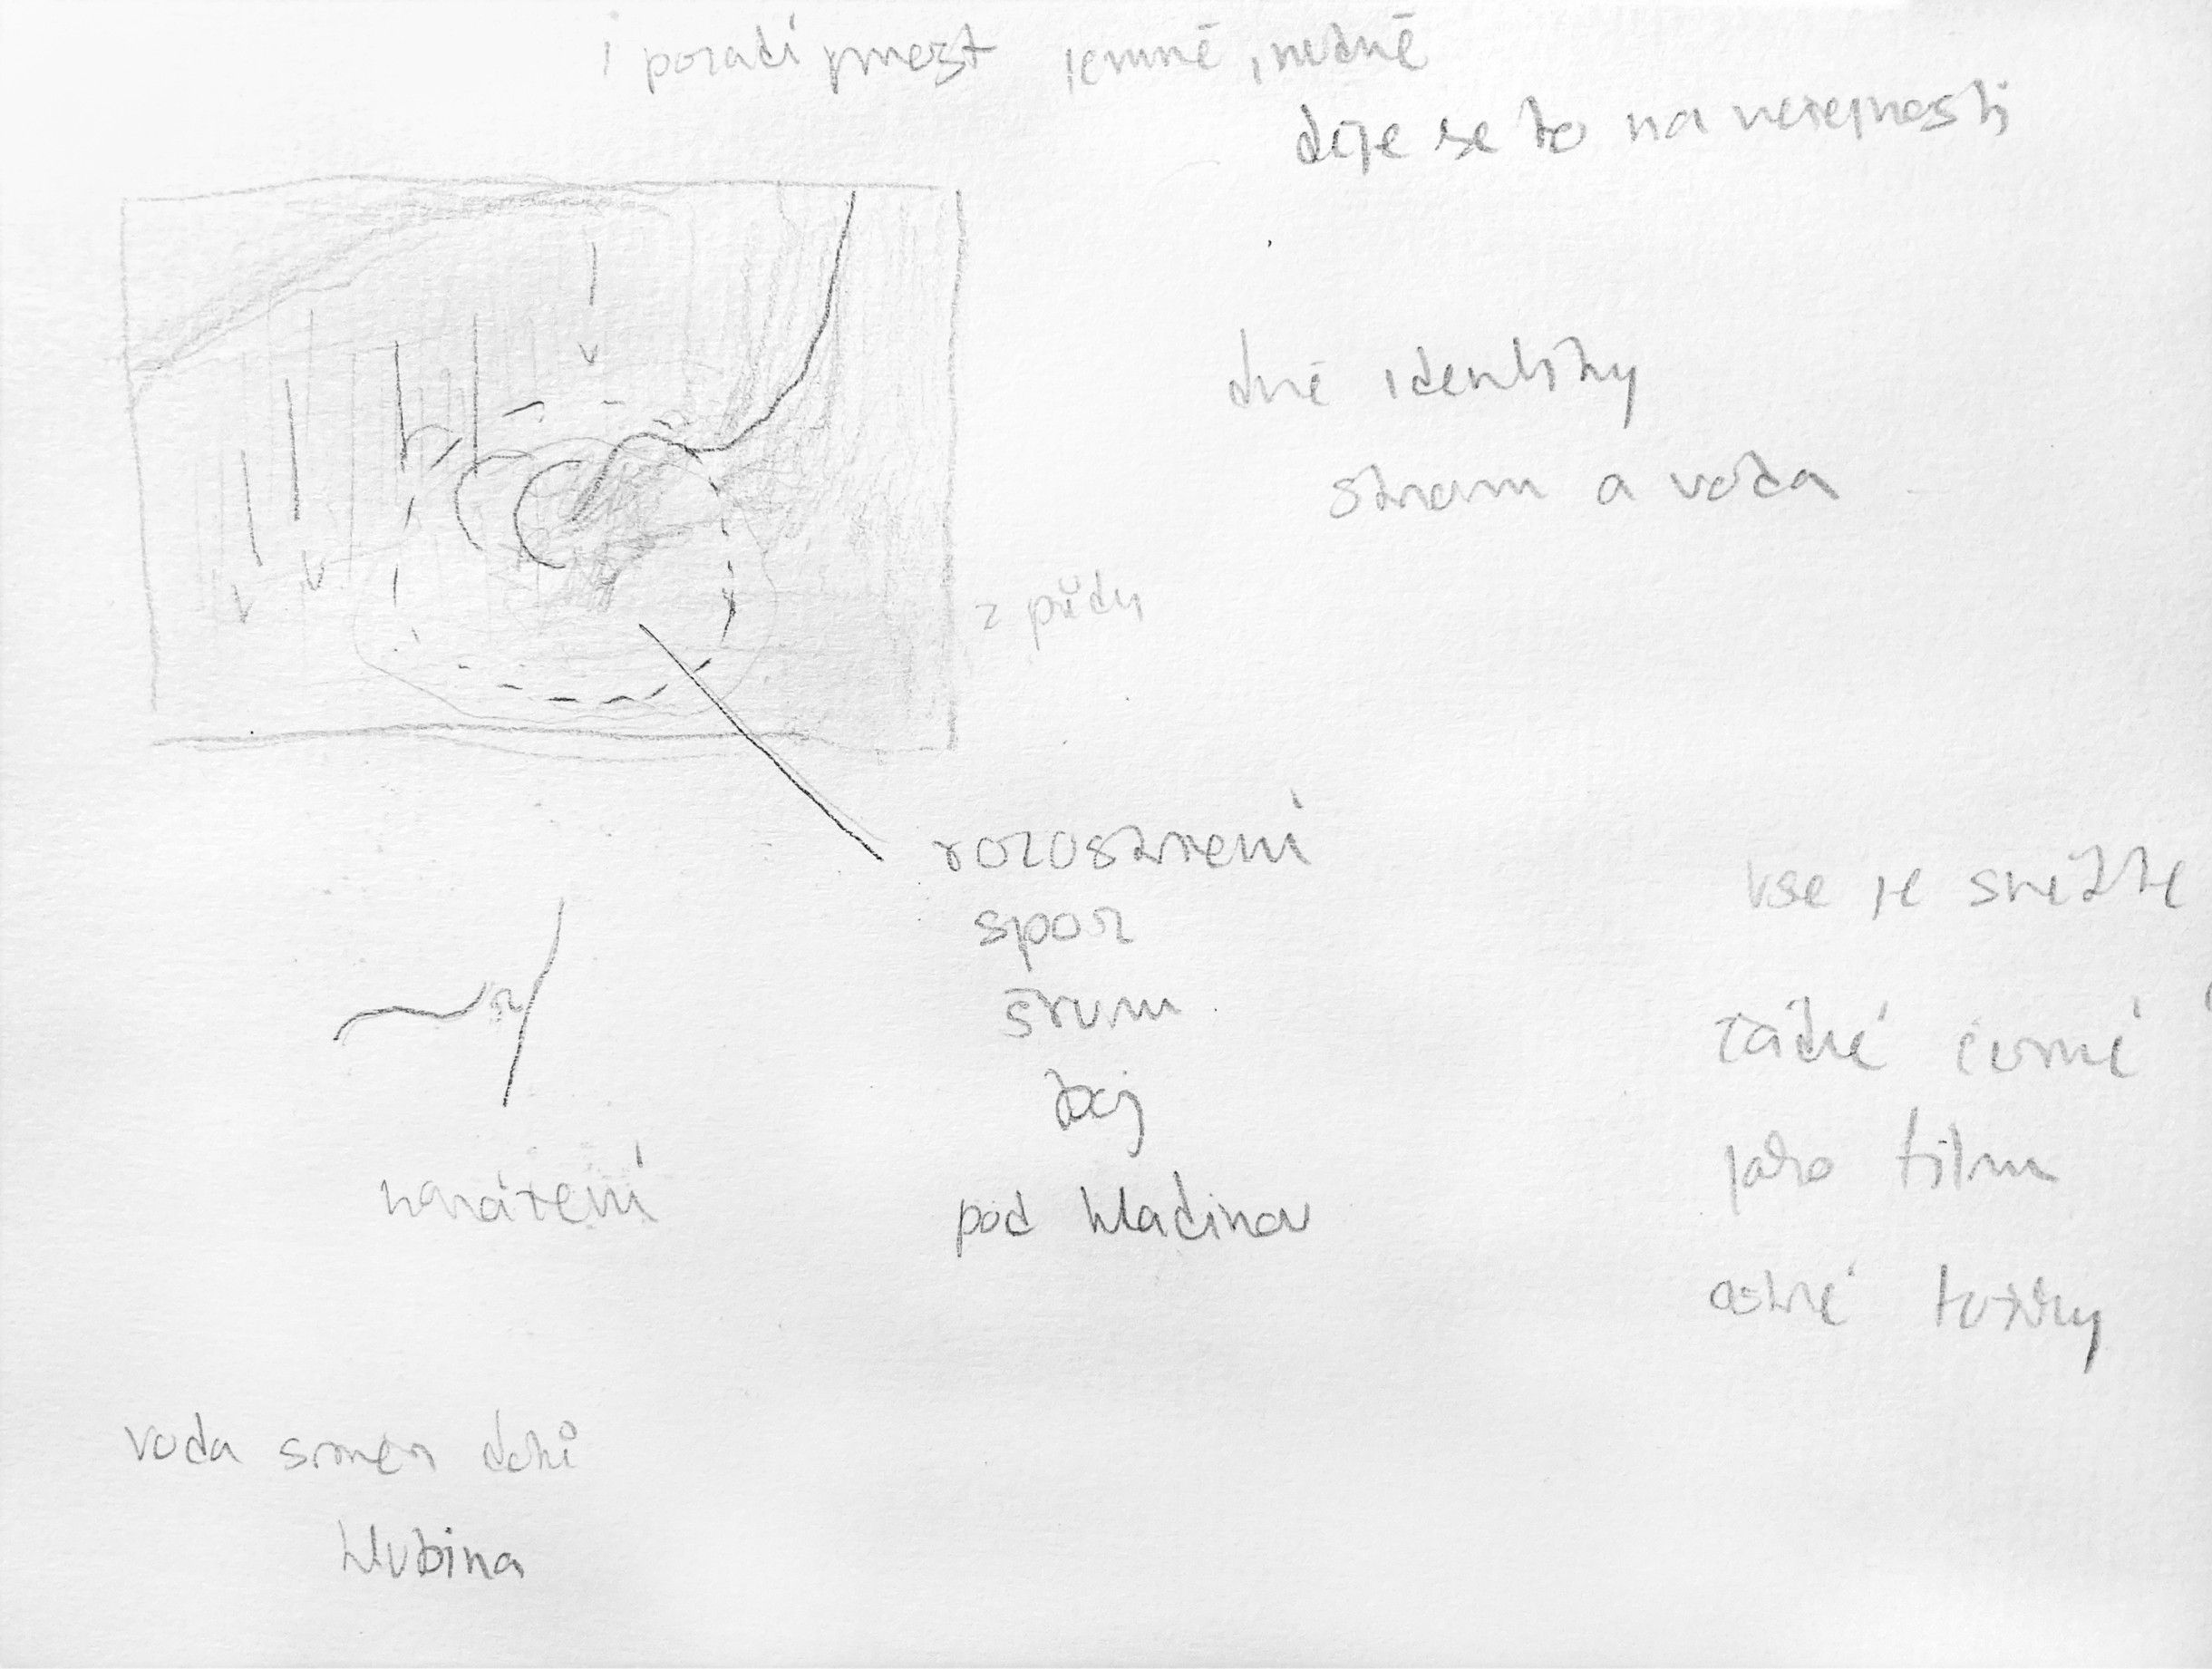 i pozadí
jemně, něžně
děje se to na veřejnosti
dvě identity
strom a voda
rozostření
spor
šrum
boj
pod hladinou
vše je světle
žádné černé
jako film
ostré tužky
narážení
voda směr dolů
hlubina